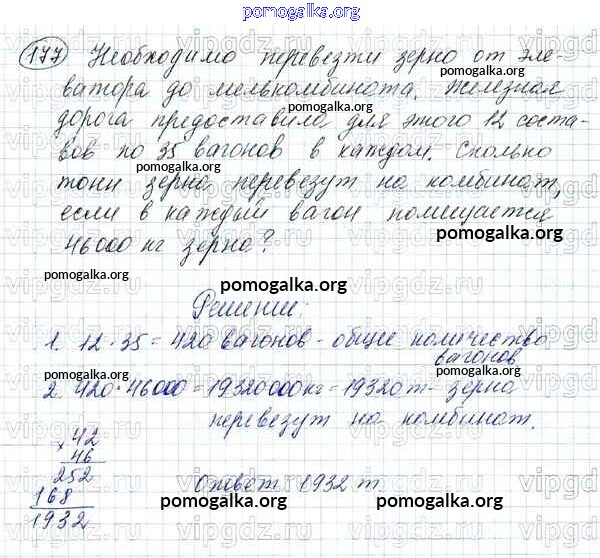 pomogalka.org
177 Необходимо перевезти зерно от эле-
pomogalka.org
ватора до мелькомбината. Железная
pomogalka.org
дорога предоставила для этого 12 соста-
вов по 35 вагонов в каждом. Сколько
pomogalka.org
тонн зерна перевезут на комбинат,
если в каждый вагон помещается
pomogalka.org
46000 кг зерна?
pomogalka.org
pomogalka.org
Решение:
1. 12·35=420 вагонов - общее количество
вагонов
pomogalka.org
2. 420·46000=19320000кг=19320т- зерна
перевезут на комбинат.
× 42
46
252
168
1932
Ответ 1932 т
pomogalka.org
pomogalka.org
vipgdz.ru